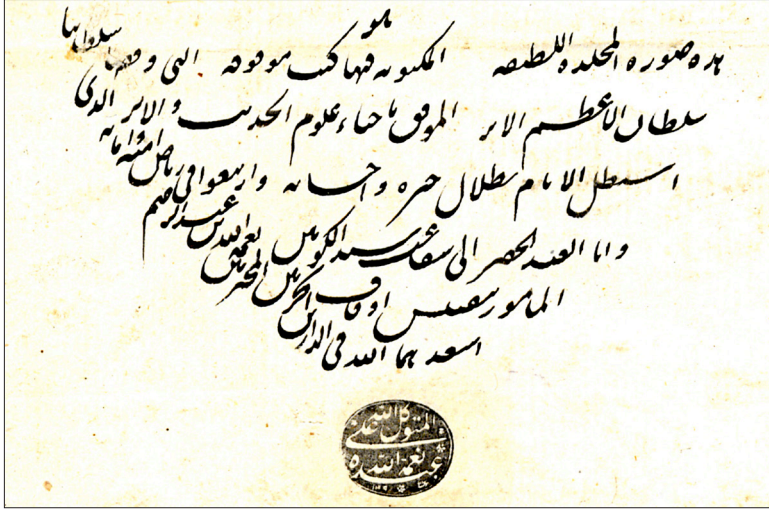 هذه صورة المجلدة اللطيفة المكتوبة فيها كتب موقوفة التي وقفها سلطاننا
سلطان الأعظم الابر الموفق باحياء علوم الحديث والاثر الذي
استظل الانام بظلال خيره واحسانه وارتعوا في رياض امنه وامانه
وانا العبد الحقير الى شفاعة سيد الكونين نعمة الله بن عبد الرحيم
المامور بتفتيش اوقاف الحرمين المحترمين
اسعدهما الله في الدارين
المتوكل الله
عبده نعمة الله